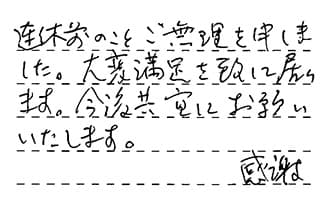 連休前のことご無理を申しま
した。大変満足を致して居り
ます。今後共宜しくお願い
いたします。
感謝